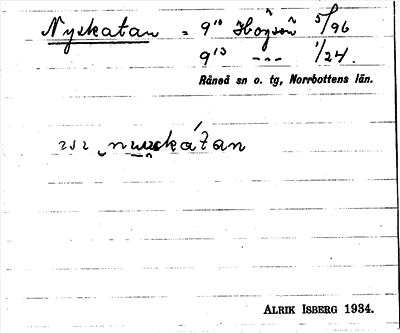 Nyskatan = 9¹⁰ Högsön 5/96
9¹³ -"- 1/24.
Råneå sn o. tg, Norrbottens län.
ALRIK ISBERG 1934.